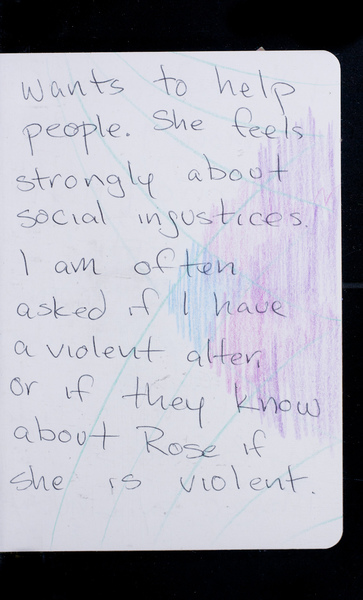 wants to help
people. She feels
strongly about
social injustices.
I am often
asked if I have
a violent alter,
or if they know
about Rose if
she is violent.